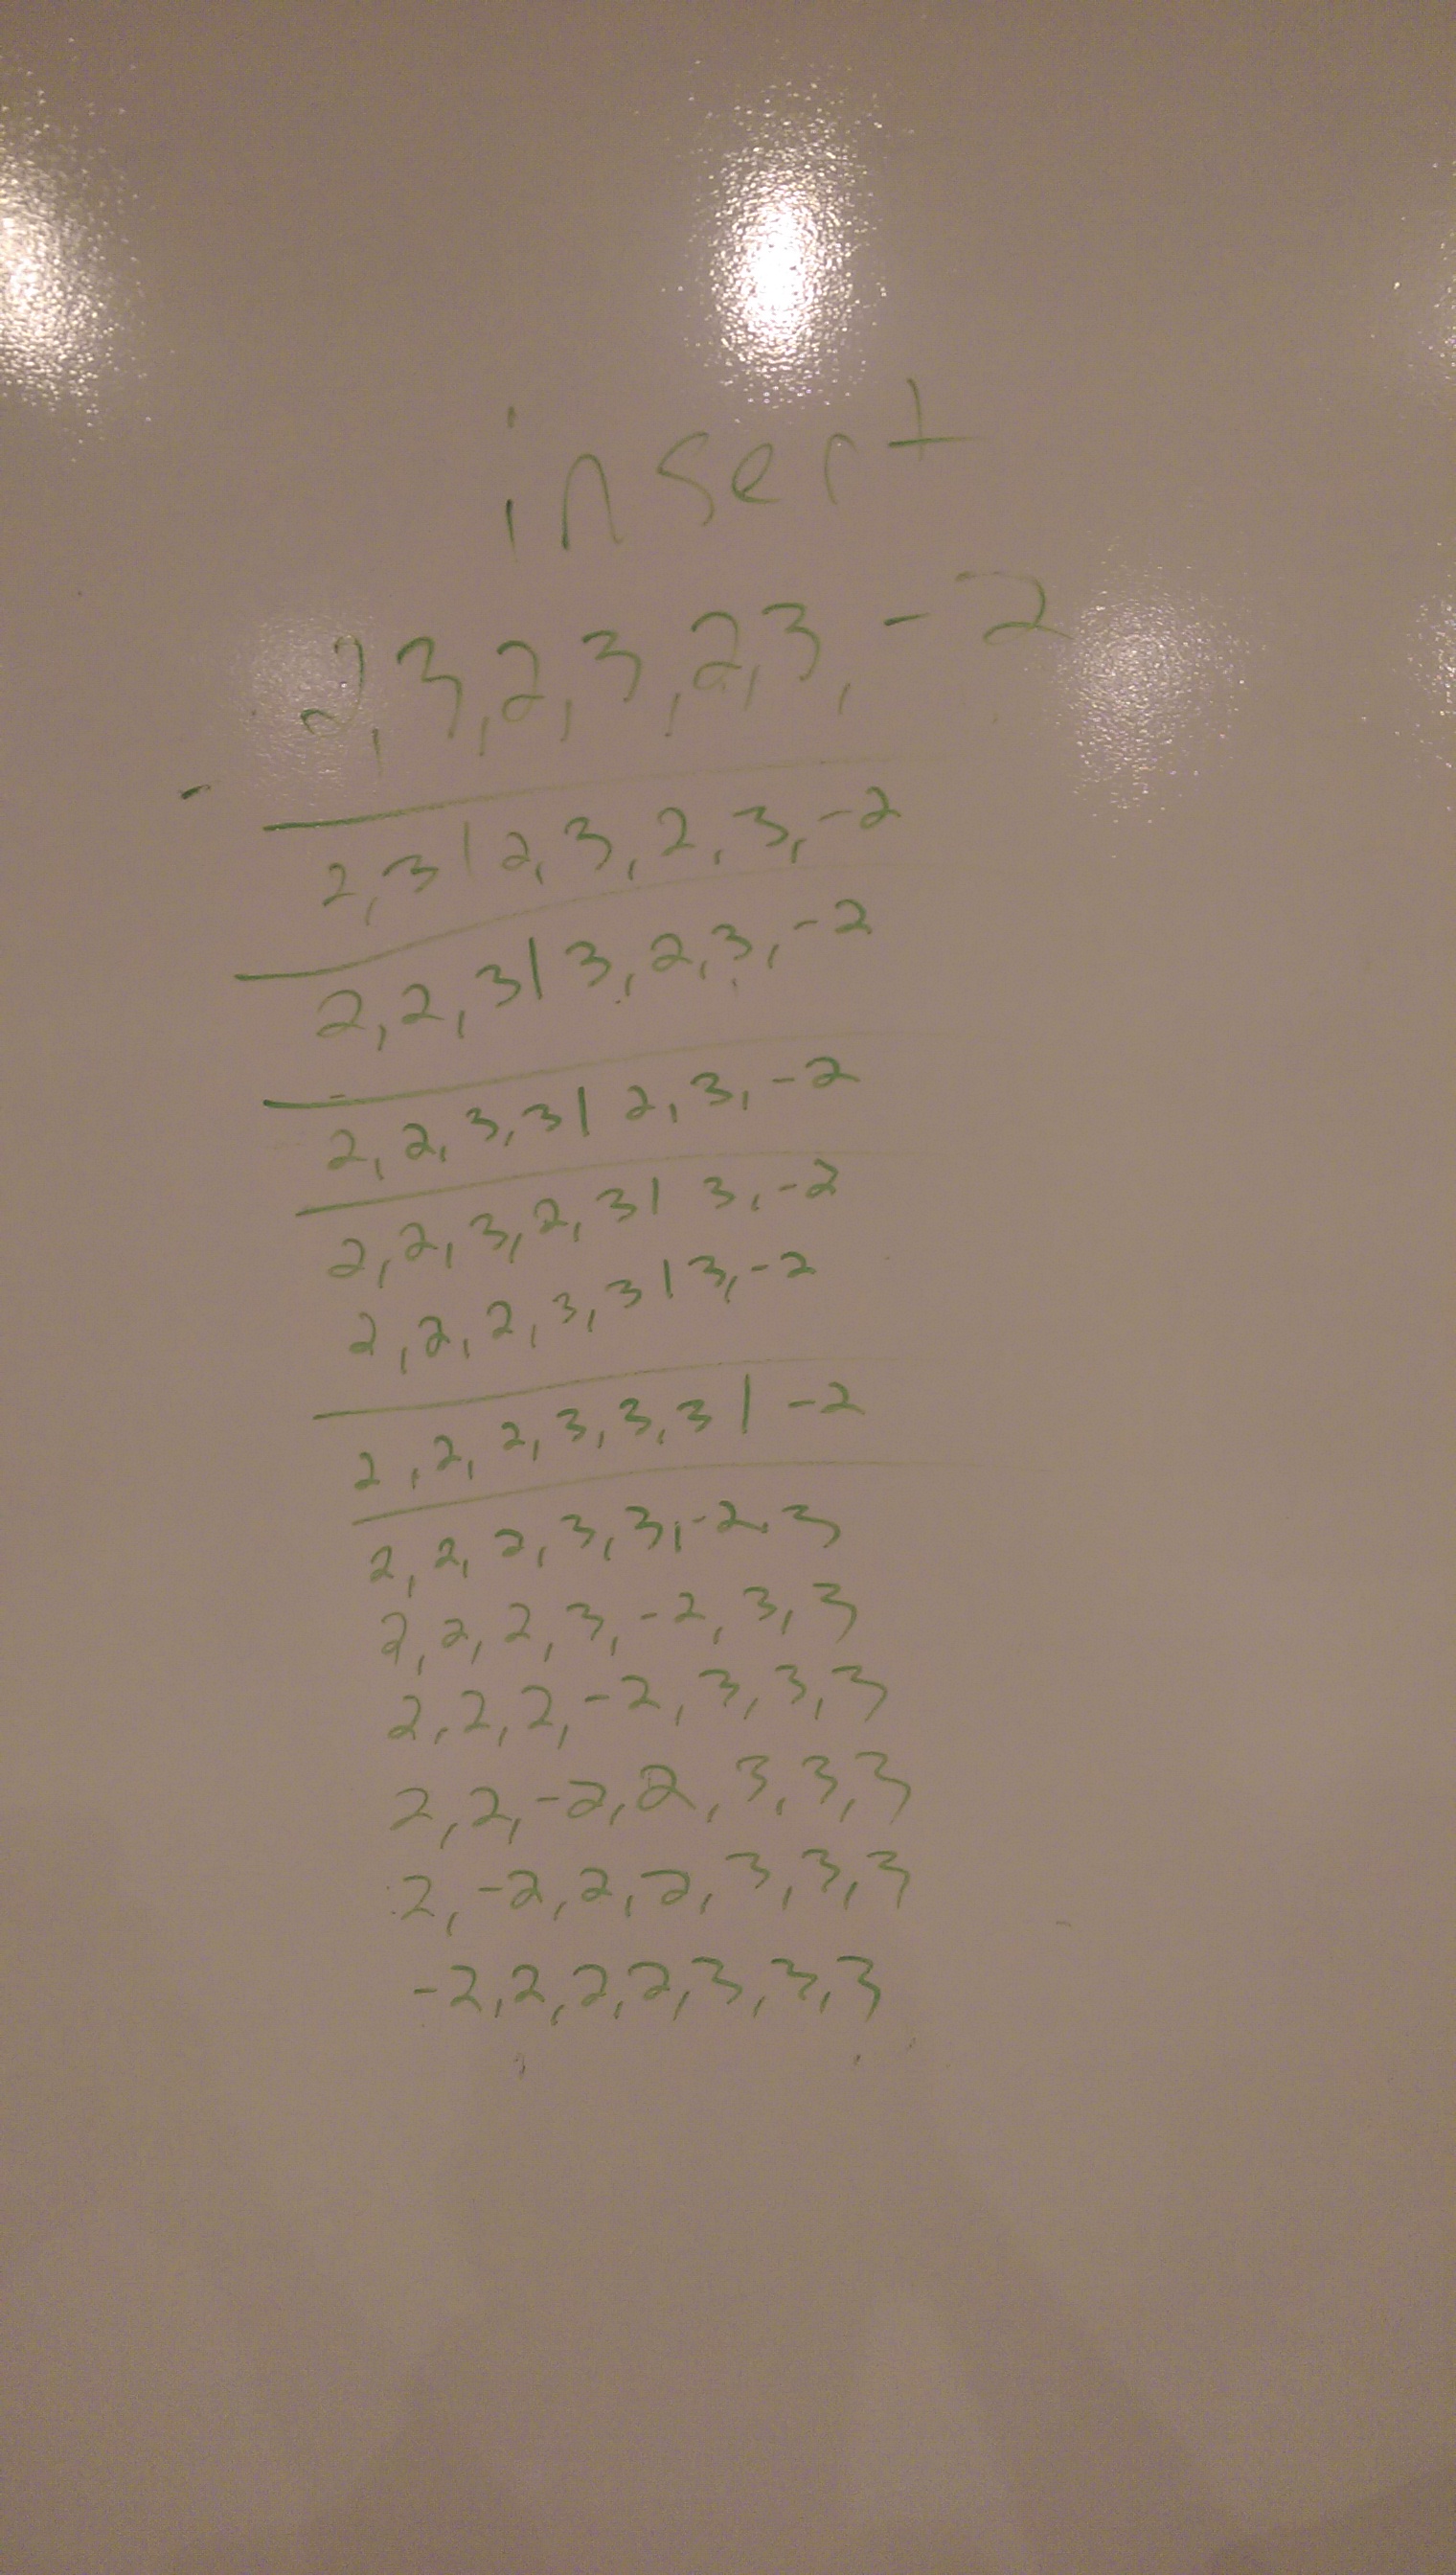 insert
2,3,2,3,2,3,-2
2,3|2,3,2,3,-2
2,2,3|3,2,3,-2
2,2,3,3|2,3,-2
2,2,3,2,3|3,-2
2,2,2,3,3|3,-2
2,2,2,3,3,3|-2
2,2,2,3,3,-2,3
2,2,2,3,-2,3,3
2,2,2,-2,3,3,3
2,2,-2,2,3,3,3
2,-2,2,2,3,3,3
-2,2,2,2,3,3,3